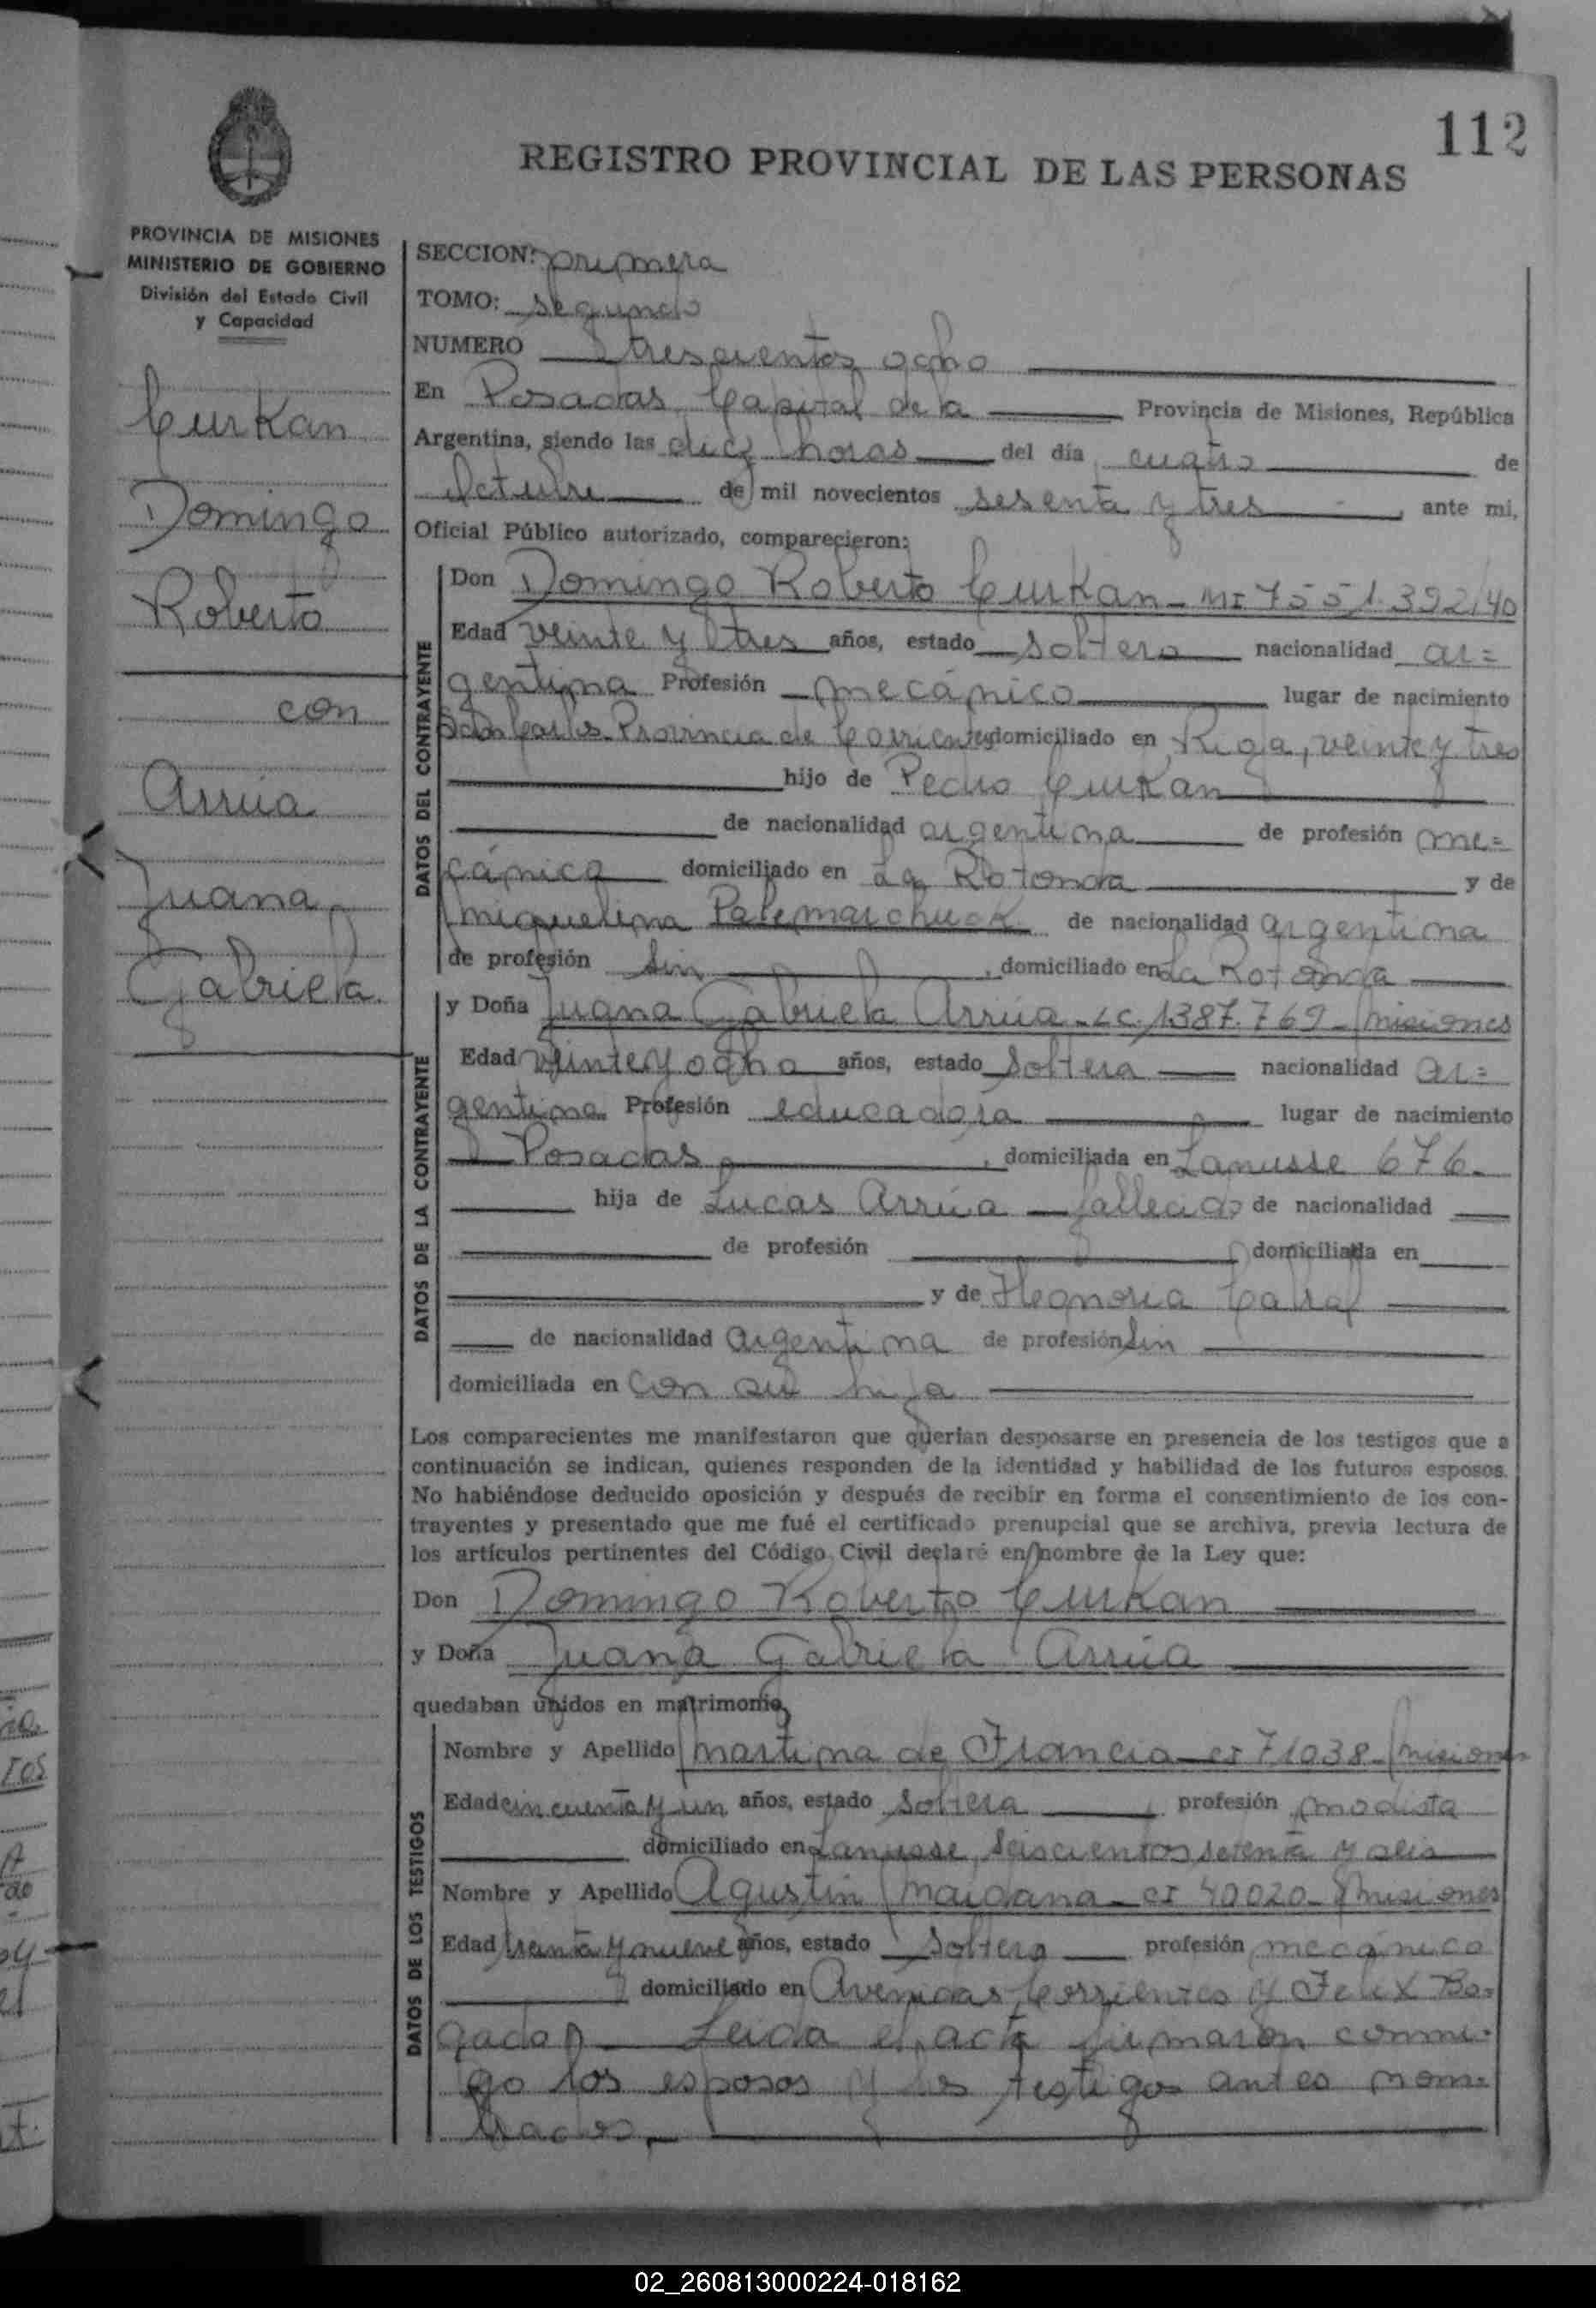 112
REGISTRO PROVINCIAL DE LAS PERSONAS
PROVINCIA DE MISIONES
MINISTERIO DE GOBIERNO
División del Estado Civil
y Capacidad
Curkan
Domingo
Roberto
con
Arrúa
Juana
Gabriela.
SECCION: primera
TOMO: segundo
NUMERO trescientos ocho
En Posadas, Capital de la Provincia de Misiones, República
Argentina, siendo las diez horas del día cuatro de
Octubre de mil novecientos sesenta y tres, ante mi,
Oficial Público autorizado, comparecieron:
DATOS DEL CONTRAYENTE
Don Domingo Roberto Curkan - MI 7551.392/40
Edad veinte y tres años, estado soltero nacionalidad ar=
gentina Profesión mecánico lugar de nacimiento
San Carlos Provincia de Corrientes domiciliado en Rioja, veinte y tres
hijo de Pedro Curkan
de nacionalidad argentina de profesión me=
cánico domiciliado en La Rotonda y de
Miguelina Palemarchuck de nacionalidad argentina
de profesión sin, domiciliado en La Rotonda
DATOS DE LA CONTRAYENTE
y Doña Juana Gabriela Arrúa - LC. 1387.769 - Misiones
Edad veinte y ocho años, estado soltera nacionalidad ar=
gentina Profesión educadora lugar de nacimiento
Posadas, domiciliada en Lanusse 676.
hija de Lucas Arrúa - fallecido de nacionalidad
de profesión domiciliada en
y de Cabral
de nacionalidad argentina de profesión sin
domiciliada en con su hija
Los comparecientes me manifestaron que querían desposarse en presencia de los testigos que a
continuación se indican, quienes responden de la identidad y habilidad de los futuros esposos.
No habiéndose deducido oposición y después de recibir en forma el consentimiento de los con-
trayentes y presentado que me fué el certificado prenupcial que se archiva, previa lectura de
los artículos pertinentes del Código Civil declaré en nombre de la Ley que:
Don Domingo Roberto Curkan
y Doña Juana Gabriela Arrúa
quedaban unidos en matrimonio
DATOS DE LOS TESTIGOS
Nombre y Apellido Martina de Francia - CI 71038 - Misiones
Edad cincuenta y un años, estado soltera, profesión modista
domiciliado en Lanusse, seiscientos setenta y seis
Nombre y Apellido Agustín Maidana - CI 40020 - Misiones
Edad treinta y nueve años, estado soltero profesión mecánico
domiciliado en Avenidas Corrientes y Felix Bo=
gado - Leida el acta firmaron conmi=
go los esposos y los testigos antes nom=
brados.
02_260813000224-018162